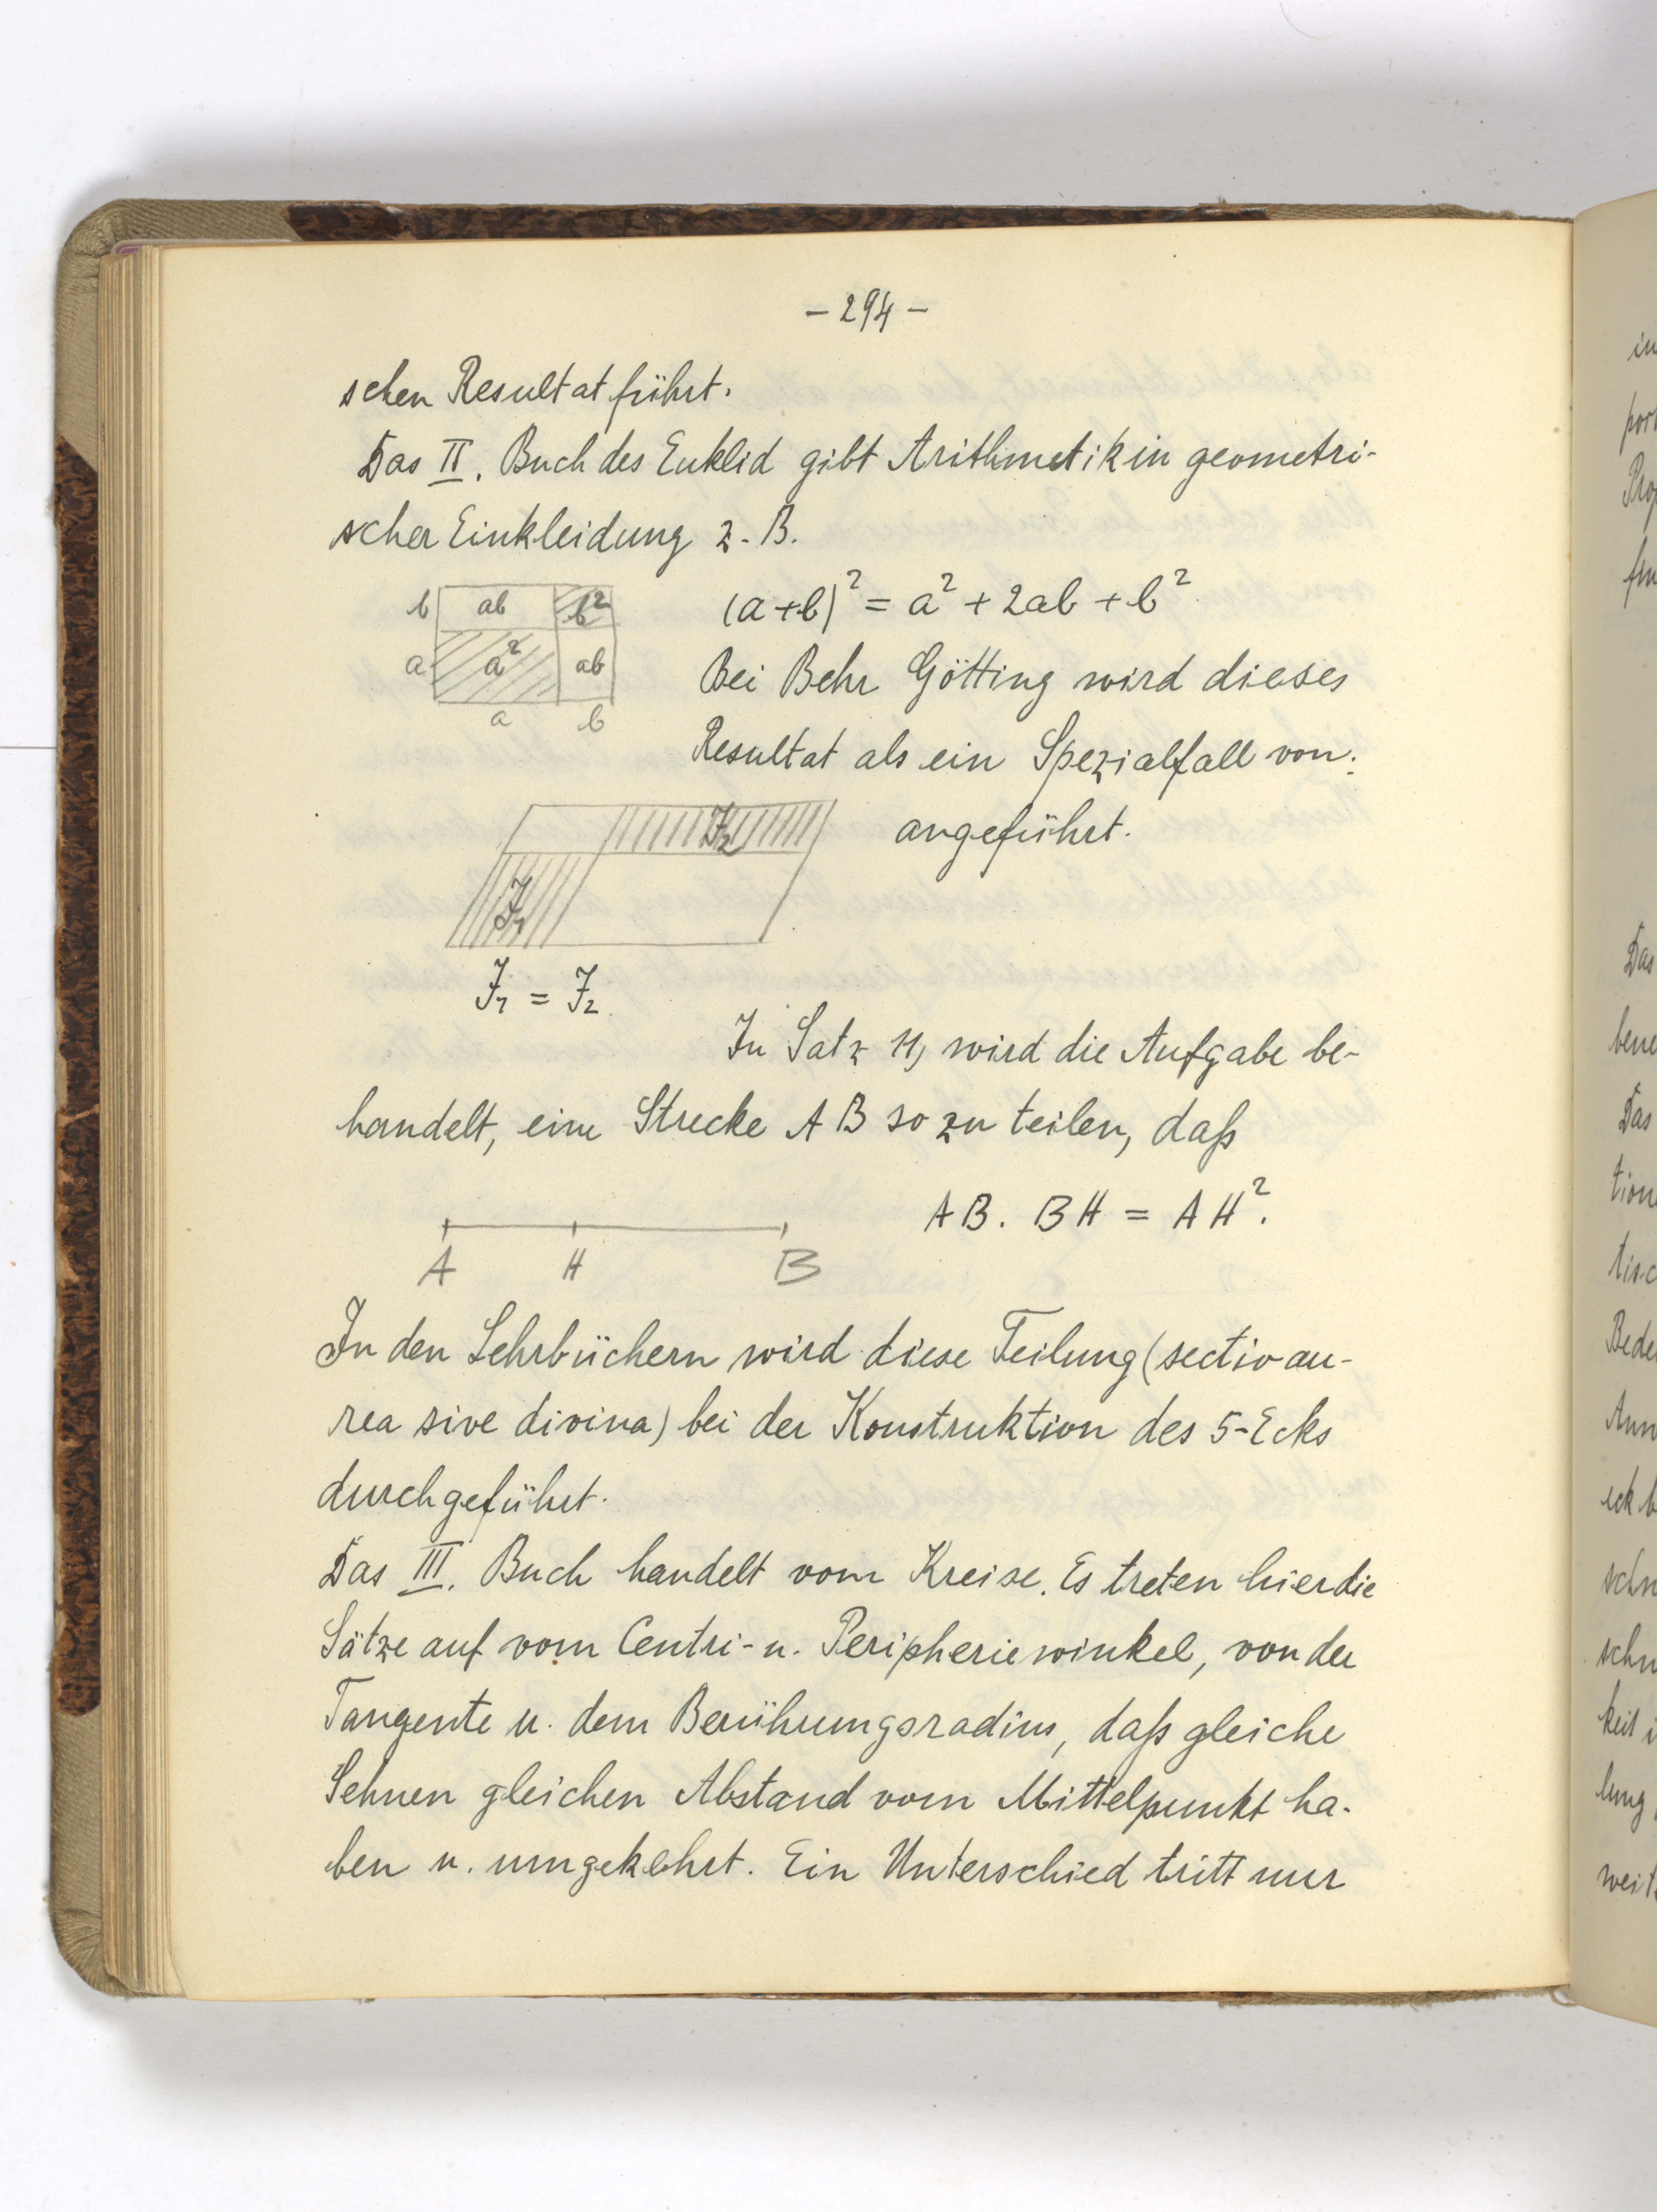 - 294 -
schen Resultat führt.
Das II. Buch des Euklid gibt Arithmetik in geometri-
scher Einkleidung z. B.
b ab b²
a a² ab
a b
(a+b)² = a² + 2ab + b²
Bei Behr Götting wird dieses
Resultat als ein Spezialfall von:
J₂
angeführt.
J₁
J₁ = J₂
In Satz 11, wird die Aufgabe be-
handelt, eine Strecke AB so zu teilen, daß
AB. BH = AH².
A H B
In den Lehrbüchern wird diese Teilung (sectio au-
rea sive divina) bei der Konstruktion des 5-Ecks
durchgeführt.
Das III. Buch handelt vom Kreise. Es treten hier die
Sätze auf vom Centri- u. Peripheriewinkel, von der
Tangente u. dem Berührungsradius, daß gleiche
Sehnen gleichen Abstand vom Mittelpunkt ha-
ben u. umgekehrt. Ein Unterschied tritt nur